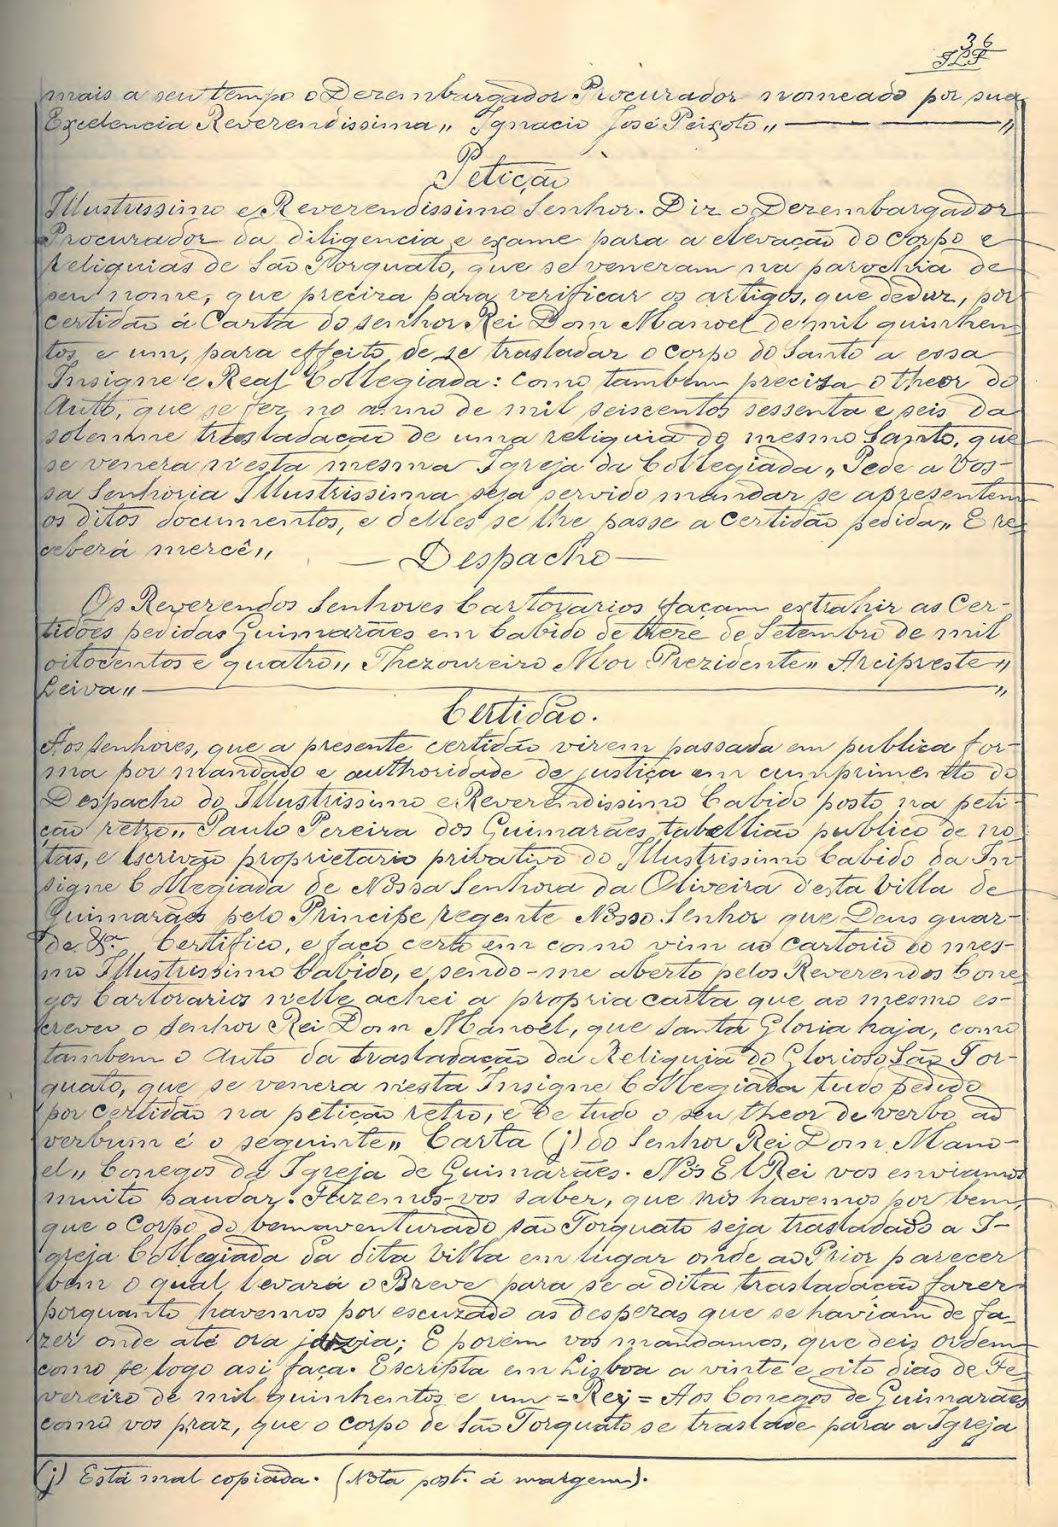 36
mais a seu tempo o Dezembargador Procurador nomeado por sua
Excelencia Reverendissima„ Ignacio José Peixoto„ — — „
Petição
Illustrissimo e Reverendissimo Senhor. Diz o Dezembargador
Procurador da diligencia e exame para a elevação do corpo e
reliquias de São Torquato, que se veneram na parochia de
seu nome, que preciza para verificar os artigos, que deduz, por
certidão á Carta do senhor Rei Dom Manoel de mil quinhen-
tos e um, para effeito de se trasladar o corpo do Santo a essa
Insigne e Real Collegiada: como tambem preciza o theor do
Auto, que se fez no anno de mil seiscentos sessenta e seis da
solemne trasladação de uma reliquia do mesmo Santo, que
se venera n'esta mesma Igreja da Collegiada„ Pede a Vos-
sa Senhoria Illustrissima seja servido mandar se apresentem
os ditos documentos, e delles se lhe passe a certidão pedida„ E re-
ceberá mercê„
— Despacho —
Os Reverendos Senhores Cartorarios façam extrahir as Cer-
tidões pedidas Guimarães em Cabido de treze de Setembro de mil
oitocentos e quatro„ Thezoureiro Mor Prezidente„ Arcipreste„
Leiva„ — „
Certidão.
Aos senhores, que a presente certidão virem passada em publica for-
ma por mandado e authoridade de justiça em cumprimento do
Despacho do Illustrissimo e Reverendissimo Cabido posto na peti-
ção retro„ Paulo Pereira dos Guimarães, tabellião publico de no-
tas, e Escrivão proprietario privativo do Illustrissimo Cabido da In-
signe Collegiada de Nossa Senhora da Oliveira d'esta Villa de
Guimarães pelo Principe regente Nosso Senhor que Deus guar-
de &ª. Certifico, e faço certo em como vim ao cartorio do mes-
mo Illustrissimo Cabido, e sendo-me aberto pelos Reverendos Cone-
gos Cartorarios nelle achei a propria carta que ao mesmo es-
creveo o senhor Rei Dom Manoel, que santa Gloria haja, como
tambem o Auto da trasladação da Reliquia do Glorioso São Tor-
quato, que se venera n'esta Insigne Collegiada tudo pedido
por certidão na petição retro, e de tudo o seu theor de verbo ad
verbum é o seguinte„ Carta (j) do Senhor Rei Dom Mano-
el„ Conegos da Igreja de Guimarães. Nós El Rei vos enviamos
muito saudar. Fazemos-vos saber, que nós havemos por bem,
que o corpo do bemaventurado são Torquato seja trasladado a I-
greja Collegiada da dita Villa em lugar onde ao Prior parecer
bem o qual levará o Breve para se a dita trasladação fazer
porquanto havemos por escuzado as desperas que se haviam de fa-
zer onde até ora jazia; E porem vos mandamos, que deis ordem
como se logo asi faça. Escripta em Lisboa a vinte e oito dias de Fe-
vereiro de mil quinhentos e um = Rey = Aos Conegos de Guimarães
como vos praz, que o corpo de São Torquato se traslade para a Igreja
(j) Está mal copiada. (Nota post. á margem).